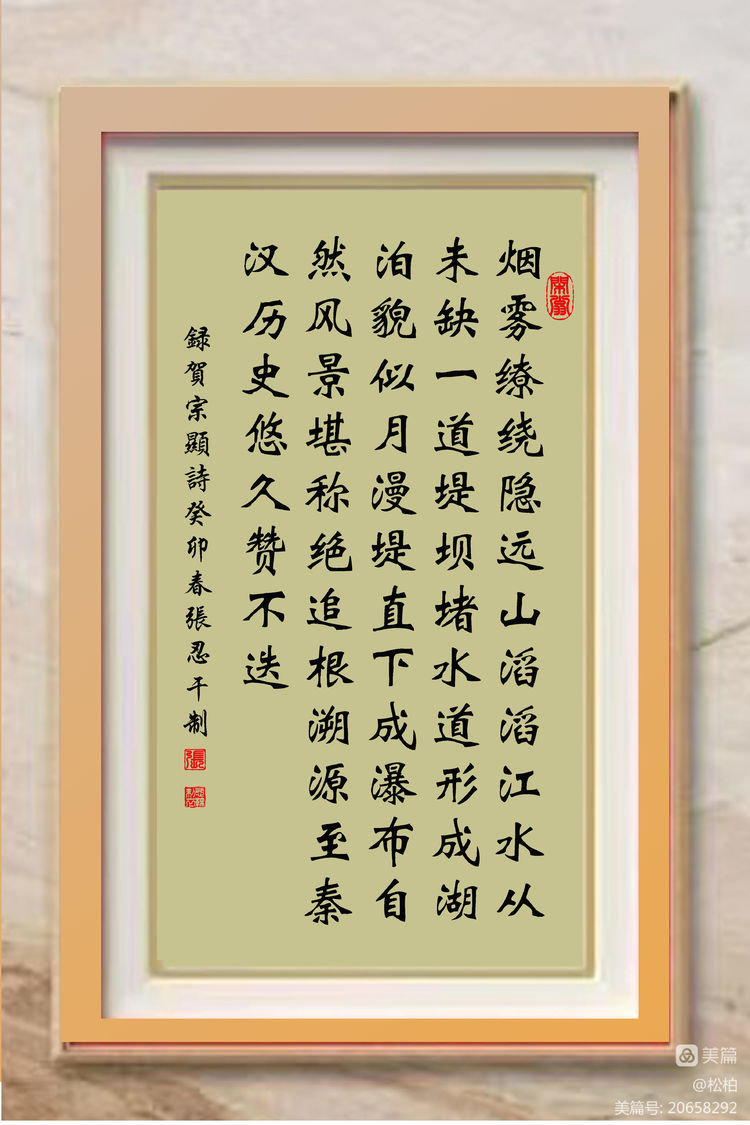 烟雾缭绕隐远山滔滔江水从
未缺一道堤坝堵水道形成湖
泊貌似月漫堤直下成瀑布自
然风景堪称绝追根溯源至秦
汉历史悠久赞不迭
録賀宗顯詩癸卯春張忍干制
張
美篇
@松柏
美篇号: 20658292